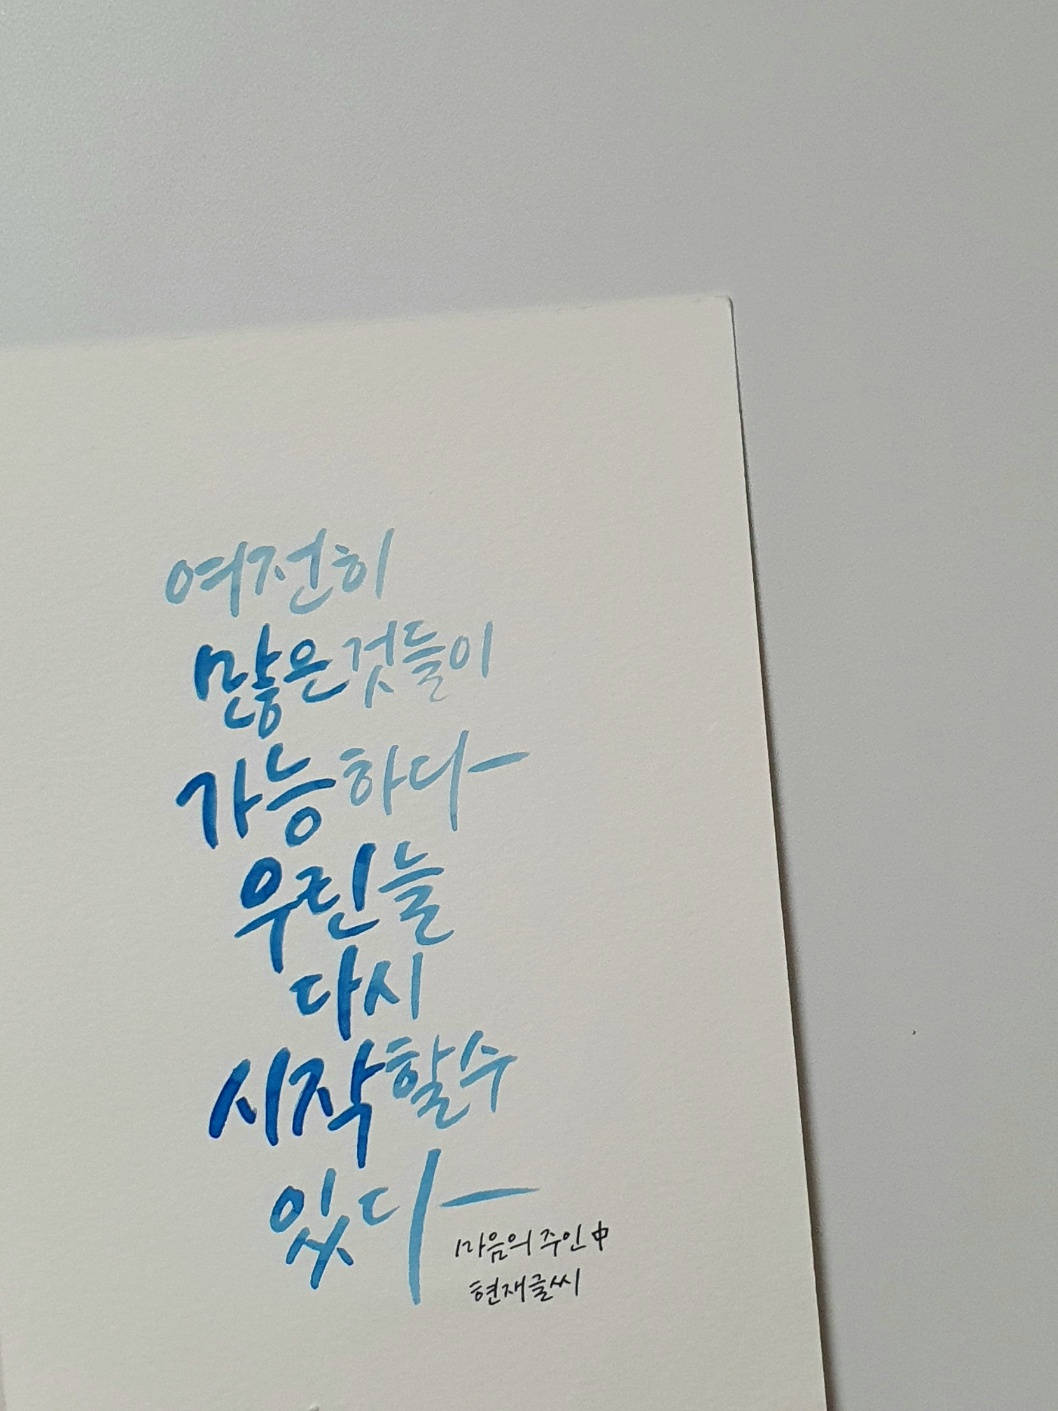 여전히
많은것들이
가능하다
우린늘
다시
시작할수
있다
마음의 주인 中
현재글씨